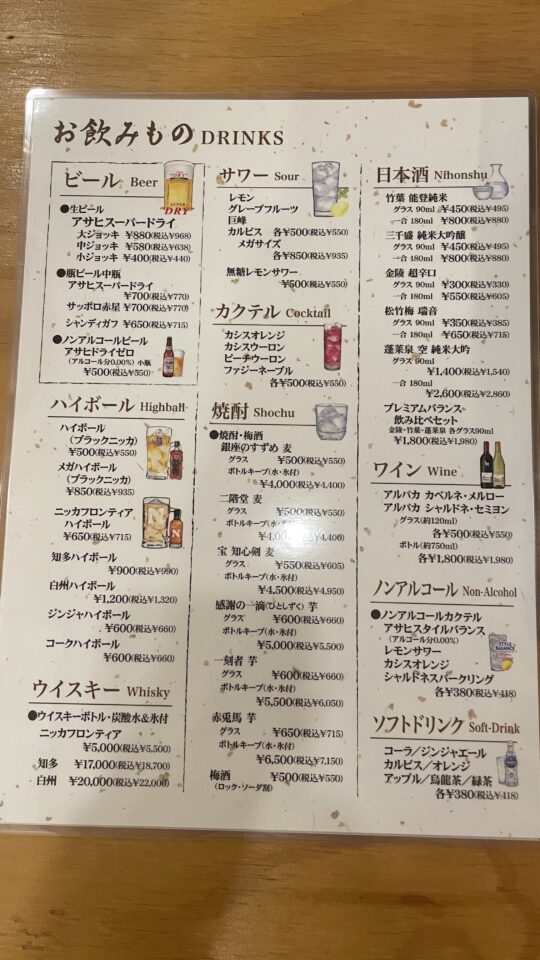 お飲みもの DRINKS
ビール Beer
●生ビール
アサヒスーパードライ
大ジョッキ ¥880(税込¥968)
中ジョッキ ¥580(税込¥638)
小ジョッキ ¥400(税込¥440)
●瓶ビール中瓶
アサヒスーパードライ
¥700(税込¥770)
サッポロ赤星 ¥700(税込¥770)
シャンディガフ ¥650(税込¥715)
●ノンアルコールビール
アサヒドライゼロ
(アルコール分0.00%) 小瓶
¥500(税込¥550)
ハイボール Highball
ハイボール
(ブラックニッカ)
¥500(税込¥550)
メガハイボール
(ブラックニッカ)
¥850(税込¥935)
ニッカフロンティア
ハイボール
¥650(税込¥715)
知多ハイボール
¥900(税込¥990)
白州ハイボール
¥1,200(税込¥1,320)
ジンジャハイボール
¥600(税込¥660)
コークハイボール
¥600(税込¥660)
ウイスキー Whisky
●ウイスキーボトル・炭酸水&氷付
ニッカフロンティア
¥5,000(税込¥5,500)
知多 ¥17,000(税込¥18,700)
白州 ¥20,000(税込¥22,000)
サワー Sour
レモン
グレープフルーツ
巨峰
カルピス 各¥500(税込¥550)
メガサイズ
各¥850(税込¥935)
無糖レモンサワー
¥500(税込¥550)
カクテル Cocktail
カシスオレンジ
カシスウーロン
ピーチウーロン
ファジーネーブル
各¥500(税込¥550)
焼酎 Shochu
●焼酎・梅酒
銀座のすずめ 麦
グラス ¥500(税込¥550)
ボトルキープ(水・氷付)
¥4,000(税込¥4,400)
二階堂 麦
グラス ¥500(税込¥550)
ボトルキープ(水・氷付)
¥4,000(税込¥4,400)
宝 知心剣 麦
グラス ¥550(税込¥605)
ボトルキープ(水・氷付)
¥4,500(税込¥4,950)
感謝の一滴(ひとしずく) 芋
グラス ¥600(税込¥660)
ボトルキープ(水・氷付)
¥5,000(税込¥5,500)
一刻者 芋
グラス ¥600(税込¥660)
ボトルキープ(水・氷付)
¥5,500(税込¥6,050)
赤兎馬 芋
グラス ¥650(税込¥715)
ボトルキープ(水・氷付)
¥6,500(税込¥7,150)
梅酒 ¥500(税込¥550)
(ロック・ソーダ割)
日本酒 Nihonshu
竹葉 能登純米
グラス 90ml ¥450(税込¥495)
一合 180ml ¥800(税込¥880)
三千盛 純米大吟醸
グラス 90ml ¥450(税込¥495)
一合 180ml ¥800(税込¥880)
金陵 超辛口
グラス 90ml ¥300(税込¥330)
一合 180ml ¥550(税込¥605)
松竹梅 瑞音
グラス 90ml ¥350(税込¥385)
一合 180ml ¥650(税込¥715)
蓬莱泉 空 純米大吟
グラス 90ml
¥1,400(税込¥1,540)
一合 180ml
¥2,600(税込¥2,860)
プレミアムバランス
飲み比べセット
金陵・竹葉・蓬莱泉 各グラス90ml
¥1,800(税込¥1,980)
ワイン Wine
アルパカ カベルネ・メルロー
アルパカ シャルドネ・セミヨン
グラス(約120ml)
各¥500(税込¥550)
ボトル(約750ml)
各¥1,800(税込¥1,980)
ノンアルコール Non-Alcohol
●ノンアルコールカクテル
アサヒスタイルバランス
(アルコール分0.00%)
レモンサワー
カシスオレンジ
シャルドネスパークリング
各¥380(税込¥418)
ソフトドリンク Soft-Drink
コーラ/ジンジャエール
カルピス/オレンジ
アップル/烏龍茶/緑茶
各¥380(税込¥418)